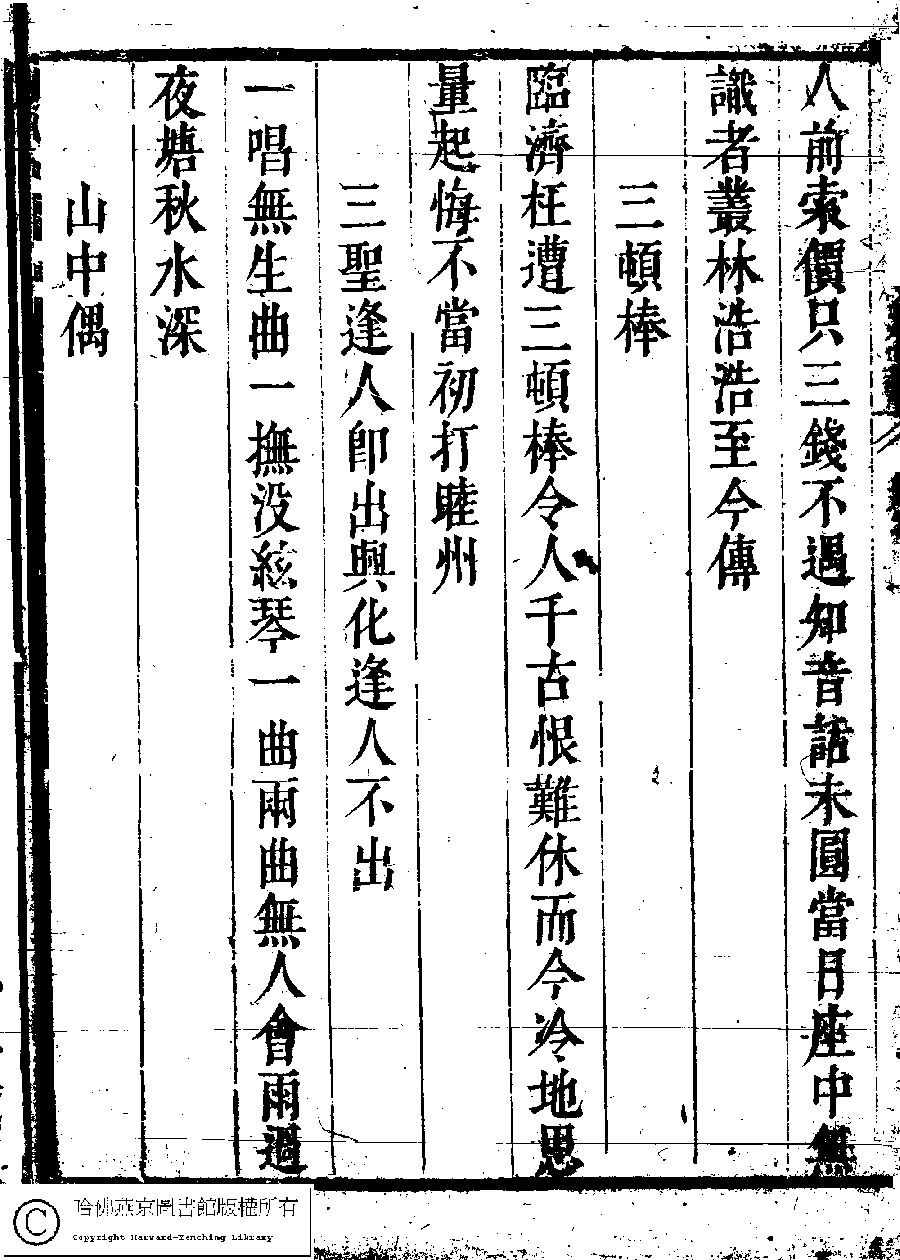 人前索價只三錢不遇知音話未圓當日座中無
識者叢林浩浩至今傳
三頓棒
臨濟枉遭三頓棒令人千古恨難休而今冷地思
量起悔不當初打睦州
三聖逢人卽出興化逢人不出
一唱無生曲一撫没絃琴一曲兩曲無人會雨過
夜塘秋水深
山中偶
哈佛燕京圖書館版權所有
Copyright Harvard-Yenching Library